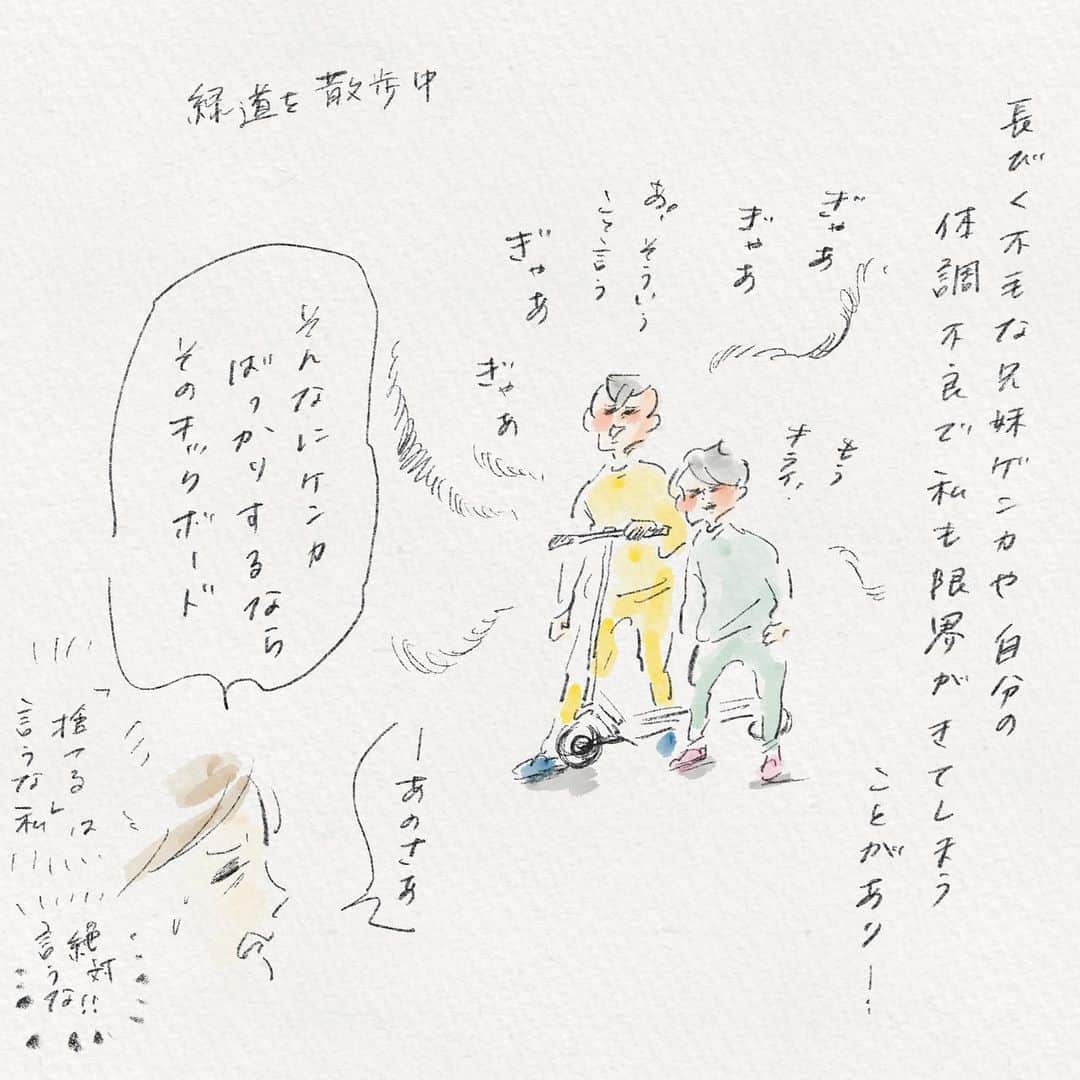 長びく不毛な兄妹ゲンカや自分の
体調不良で私も限界がきてしまう
ことがありー…
緑道を散歩中
ぎゃあ
ぎゃあ
あ。そういう
こと言う
ぎゃあ
ぎゃあ
もう
キライ!
ーあのさあ
そんなにケンカ
ばっかりするなら
そのキックボード
「捨てる」は
言うな私
絶対!!
言うな